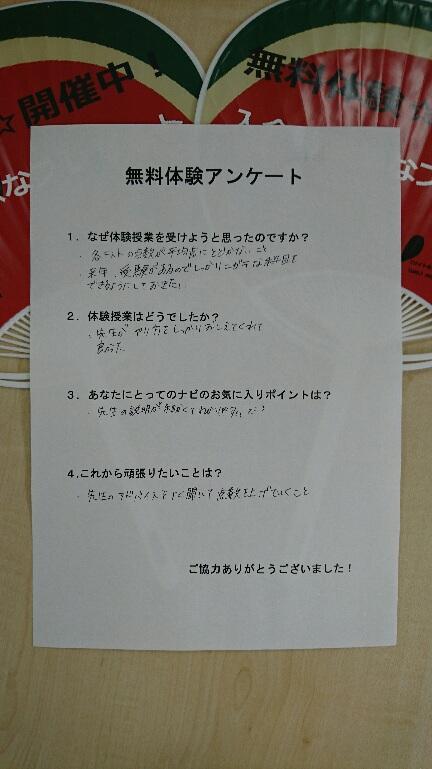 ☆開催中!
無料体験☆
無料体験アンケート
1. なぜ体験授業を受けようと思ったのですか?
・各テストの点数が平均点にとどかないこと
・来年、受験があるのでしっかりニガテな科目を
できるようにしておきたい
2. 体験授業はどうでしたか?
・先生が やり方をしっかりおしえてくれて
良かった
3. あなたにとってのナビのお気に入りポイントは?
・先生の説明が 細かくてわかりやすい
4.これから頑張りたいことは?
・先生のアドバイスをすぐ聞いて点数を上げていくこと
ご協力ありがとうございました!